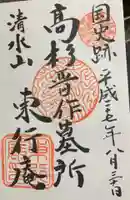 国史跡
平成二十七年八月三十日
高杉晋作墓所
清水山
東行庵